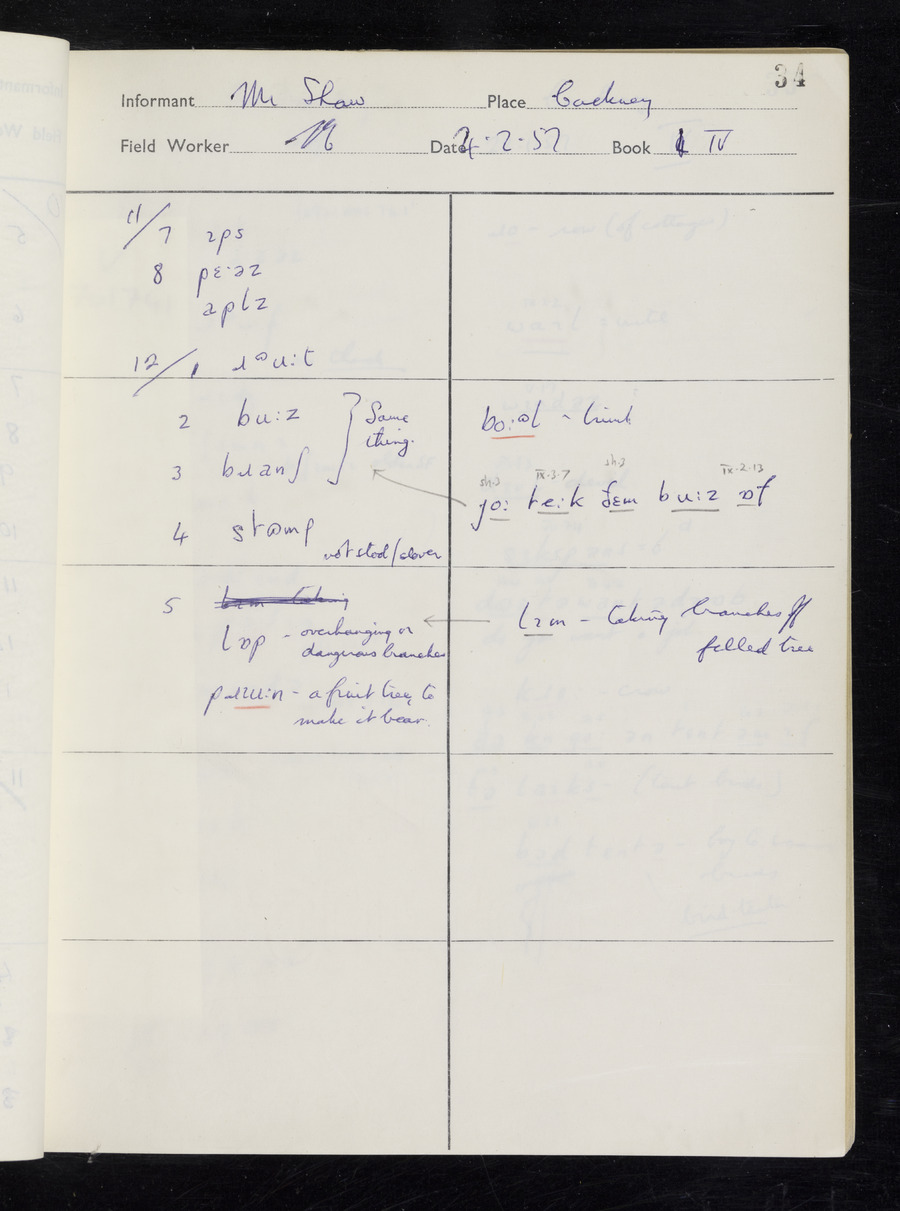 34
Informant Mr Shaw Place Cuckney
Field Worker Date 4.2.57 Book IV
11/7 ɪps
8 pɛ·əz
apɫz
12/1 ɹᵊu:t
2 bu:z } Same thing.
3 bɹanʃ
4 stɒmp
not sted/clover
5
lɒp - overhanging or
dangerous branches
pɹɪu:n - a fruit tree, to
make it bear.
bo:əl - trunk
sh.3 IX.3.7 sh.3 IX.2.13
jo: te:k ðɛm bu:z ɒf
lɪm - taking branches off
felled tree